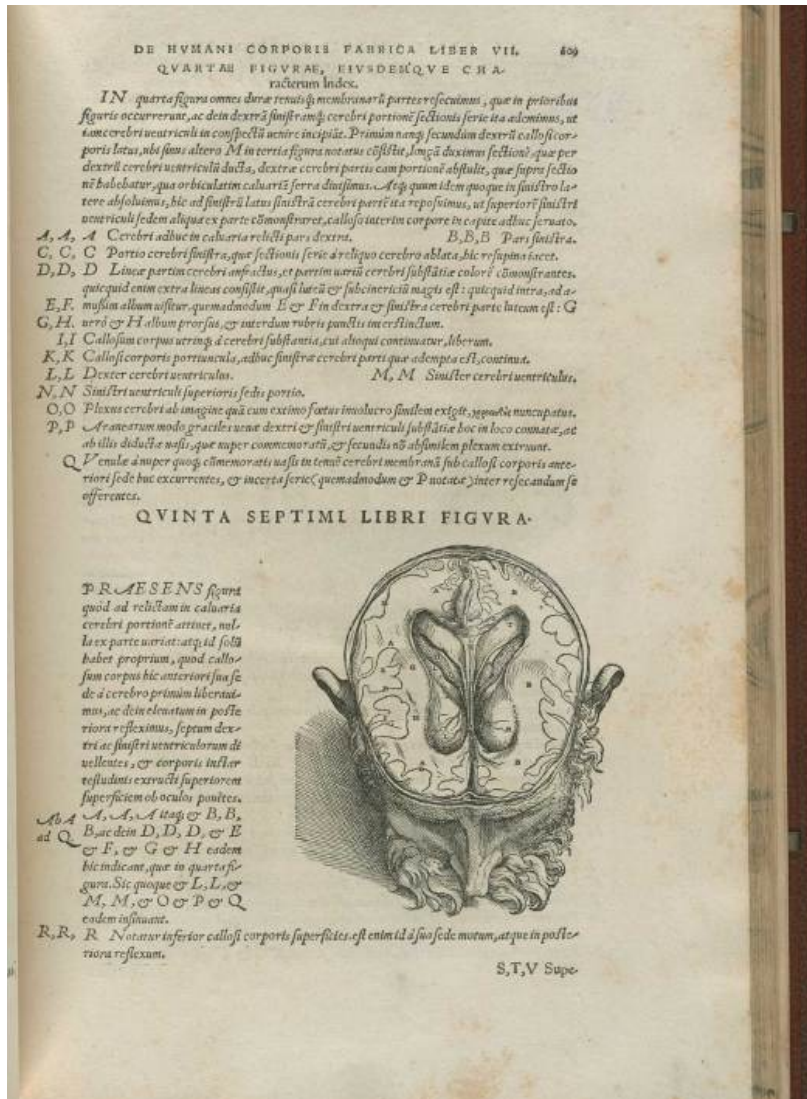 DE HVMANI CORPORIS FABRICA LIBER VII. 609
QVARTAE FIGVRAE, EIVSDEMQVE CHA-
racterum Index.
IN quarta figura omnes duræ tenuisq́; membranarũ partes resecuimus, quæ in prioribus
figuris occurrerunt, ac dein dextrã sinistramq́; cerebri portionẽ sectionis serie ita ademimus, ut
iam cerebri uentriculi in conspectũ uenire incipiãt. Primùm nanq; secundum dextrũ callosi cor-
poris latus, ubi sinus altero M in tertia figura notatus cõsistit, longã duximus sectionẽ, quæ per
dextrũ cerebri uentriculũ ducta, dextræ cerebri partis eam portionẽ abstulit, quæ supra sectio
nẽ habebatur, qua orbiculatim caluariã serra diuisimus. Atq; quum idem quoque in sinistro la-
tere absoluimus, hic ad sinistrũ latus sinistrã cerebri partẽ ita reposuimus, ut superiorẽ sinistri
uentriculi sedem aliqua ex parte cõmonstraret, calloso interim corpore in capite adhuc seruato.
A, A, A Cerebri adhuc in caluaria relicti pars dextra. B, B, B Pars sinistra.
C, C, C Portio cerebri sinistra, quæ sectionis serie à reliquo cerebro ablata, hic resupina iacet.
D, D, D Lineæ partim cerebri anfractus, et partim uariũ cerebri substãtiæ colorẽ cõmonstrantes.
quicquid enim extra lineas consistit, quasi luteũ & subcinericiũ magis est: quicquid intra, ad a-
E, F. mussim album uisitur. quemadmodum E & F in dextra & sinistra cerebri parte luteum est: G
G, H. uerò & H album prorsus, & interdum rubris punctis interstinctum.
I, I Callosum corpus utrinq; à cerebri substantia, cui alioqui continuatur, liberum.
K, K Callosi corporis portiuncula, adhuc sinistræ cerebri parti quæ adempta est, continua.
L, L Dexter cerebri uentriculus. M, M Sinister cerebri uentriculus.
N, N Sinistri uentriculi superioris sedis portio.
O, O Plexus cerebri ab imagine quã cum extimo fœtus inuolucro similem exigit, nuncupatus.
P, P Aranearum modo graciles uenæ dextri & sinistri uentriculi substãtiæ hoc in loco connatæ, ac
ab illis diductæ uasis, quæ nuper commemoratũ, & secundis nõ absimilem plexum extruunt.
Q Venulæ à nuper quoq; cõmemoratis uasis in tenuẽ cerebri membranã sub callosi corporis ante-
riori sede huc excurrentes, & incerta serie (quemadmodum & P notatæ) inter resecandum se
offerentes.
QVINTA SEPTIMI LIBRI FIGVRA.
PRAESENS figura
quòd ad relictam in caluaria
cerebri portionẽ attinet, nul-
la ex parte uariat: atq; id solũ
habet proprium, quod callo-
sum corpus hic anteriori sua se
de à cerebro primùm liberaui-
mus, ac dein eleuatum in poste
riora refleximus, septum dex-
tri ac sinistri uentriculorum di
uellentes, & corporis instar
testudinis extructi superiorem
superficiem ob oculos ponẽtes.
Ab A A, A, A itaq; & B, B,
ad Q B, ac dein D, D, D, & E
& F, & G & H eadem
hic indicant, quæ in quarta fi-
gura. Sic quoque & L, L, &
M, M, & O & P & Q
eadem insinuant.
R, R, R Notatur inferior callosi corporis superficies. est enim id à sua sede motum, atque in poste-
riora reflexum.
S, T, V Supe-